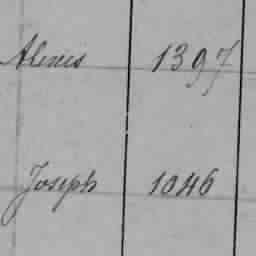 Alexis 1397
Joseph 1046